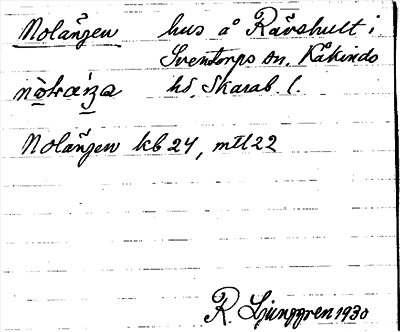 Nolången hus å Rävshult i
Sventorps sn. Kåkinds
hd, Skarab. l.
Nolången kb 24, mtl 22
R. Ljunggren 1930